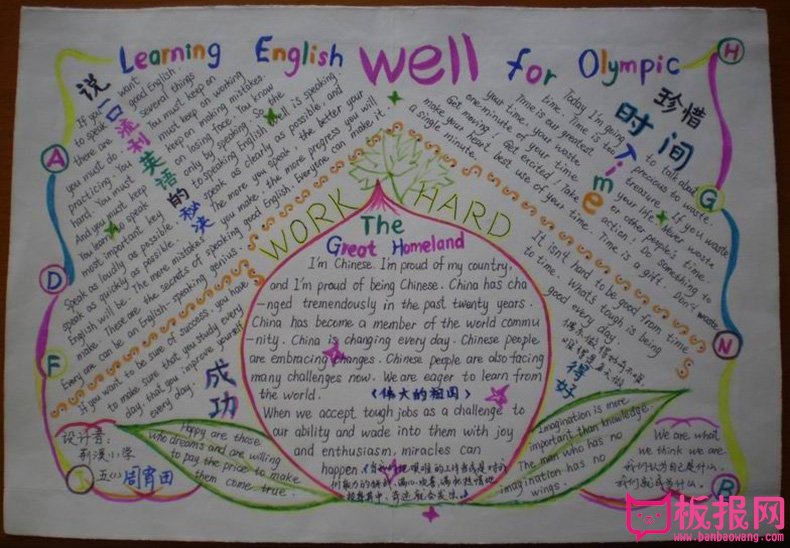 Learning English well for Olympic
说一口流利英语的秘决
If you want
to speak good English.
there are several things
you must do. You must keep on
practicing You must keep on working
hard. You must keep on making mistakes.
And you must keep on losing face. You know
You learn to speak only by speaking So the
most important key to speaking English well is speaking.
Speak as loudly as possible. speak as clearly as possible. and
speak as quickly as possible. The more you speak. the better your
English will be. The more mistakes you make. the more progress you will
make. These are the secrets of speaking good English. Everyone can make it.
Every one can be an English-speaking genius.
成功
If you want to be sure of success. you have
to make sure that you study every
day, that you improve yourself
every day.
珍惜
时间
Time
Today I'm going to talk about
time. Time is too precious to waste.
Time is our greatest treasure. If you waste
your time. you waste your life. Never waste
one-minute of your time or other people's time.
Get moving! Get excited! Take action! Do something to
make your heart best use of your time. Time is a gift. Don't waste
a single minute.
It isn't hard to be good from time
to time. What's tough is being
good every day.
得好
WORK HARD
The
Great Homeland
I'm Chinese. I'm proud of my country,
and I'm proud of being Chinese. China has cha
-nged tremendously in the past twenty years.
China has become a member of the world commu
-nity. China is changing every day. Chinese people
are embracing changes. Chinese people are also facing
many challenges now. We are eager to learn from
the world. 《伟大的祖国》
When we accept tough jobs as a challenge to
our ability and wade into them with joy
and enthusiasm, miracles can
happen
设计者:
五(1) 周宵田
Happy are those
who dreams and are willing
to pay the price to make
them come true.
Imagination is more
important than knowledge.
The man who has no
imagination has no
wings.
We are what
we think we are
我们认为自己是什么,
我们就成为什么.
A
D
F
J
H
G
N
B
板报网
www.banbaowang.com